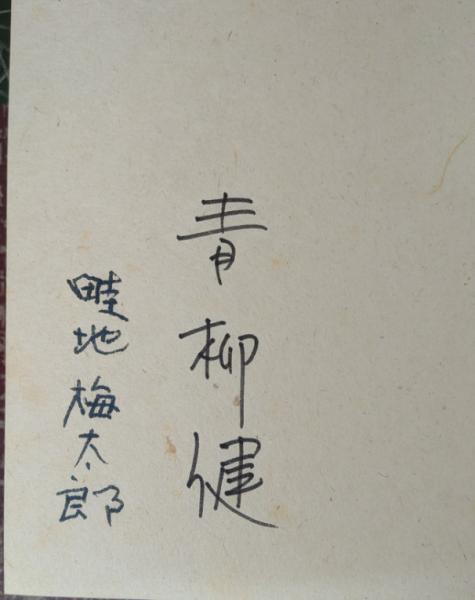 青柳健
畦地梅太郎